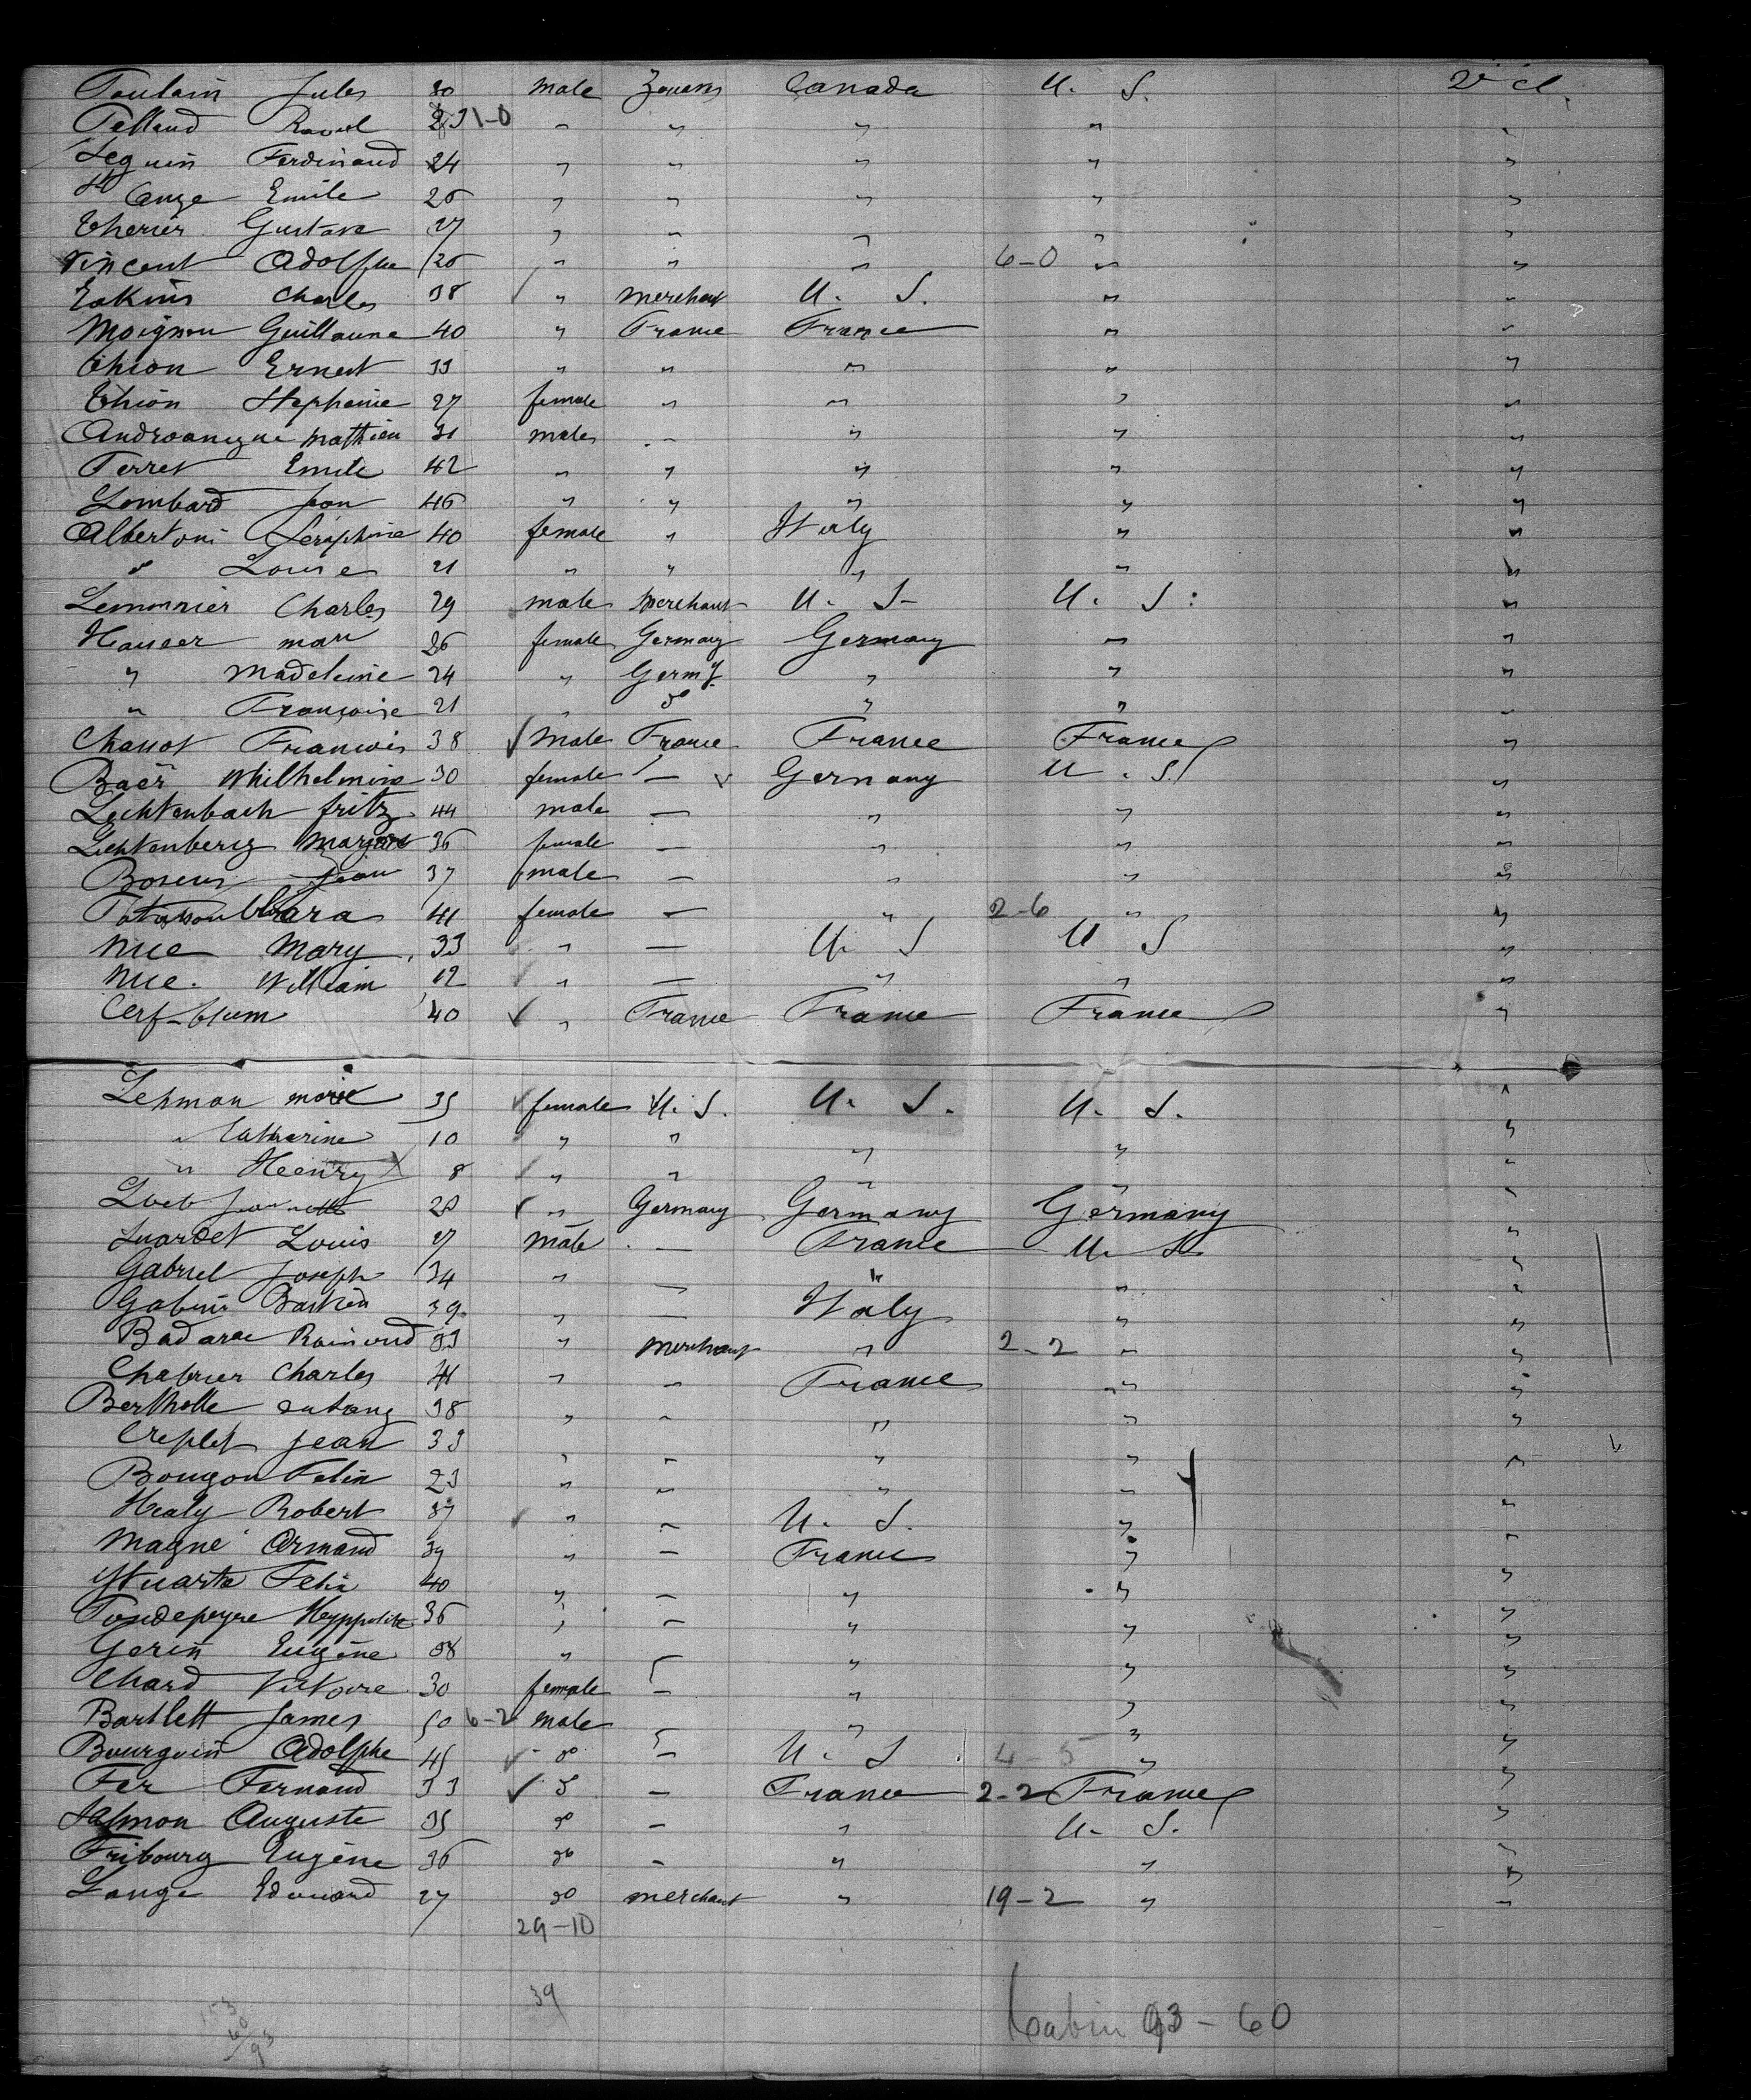 Poulain Jules 30 male Zouaves Canada U. S. 2e cl.
Pelland Raoul 23 1-0 " " " " "
Seguin Ferdinand 24 " " " " "
St Ange Emile 26 " " " " "
Therier Gustave 27 " " " " "
Vincent Adolphe 26 " " " 6-0 " "
Eakins Charles 38 " merchant U. S. " "
Moignon Guillaume 40 " France France " "
Thion Ernest 33 " " " " "
Thion Stephanie 27 female " " " "
Mathieu 31 male " " " "
Perret Emile 42 " " " " "
Lombard Jean 46 " " " " "
Albertoni Seraphine 40 female " Italy " "
" Louise 21 " " " " "
Lemonnier Charles 29 male merchant U. S. U. S. "
Hauser 26 female Germany Germany " "
" Madeleine 24 " Germy. " " "
" Françoise 21 " do " " "
Francois 38 male France France France "
Baër Whilhelmine 30 female — Germany U. S. "
Lichtenbach fritz 44 male — " " "
Lichtenberg 36 female — " " "
Jean 37 male — " " "
Clara 41 female — " 2-6 " "
Nue Mary 33 " — U. S U S "
Nue. William 12 " — " " "
Cerf-blum 40 " France France France "
Lehman marie 35 female U. S. U. S. U. S. "
" Catharine 10 " " " " "
" Heenry X 8 " " " " "
Loeb 28 " Germany Germany Germany "
Louis 27 male — France U. S. "
Gabriel Joseph 34 " — " " "
39 " — Italy " "
Badarac 33 " merchant " 2-2 " "
Chabrier Charles 41 " " France " "
38 " " " " "
Jean 33 " " " " "
Bougon 23 " " " " "
Healy Robert 37 " " U. S. " "
Magné Armand 39 " — France " "
Felix 40 " — " " "
Hyppolite 36 " — " " "
Gerin Eugène 38 " " " "
Chard Victoire 30 female — " " "
Bartlett James 50 6-2 male " " "
Bourgoin Adolphe 45 do — U. S 4-5 " "
Fer Fernand 33 do — France 2-2 France "
Salmon Auguste 35 do — " U. S. "
Fribourg Eugène 36 do — " " "
Lange Edouard 27 do merchant " 19-2 " "
29-10
39
153
60
93
Cabin 93-60